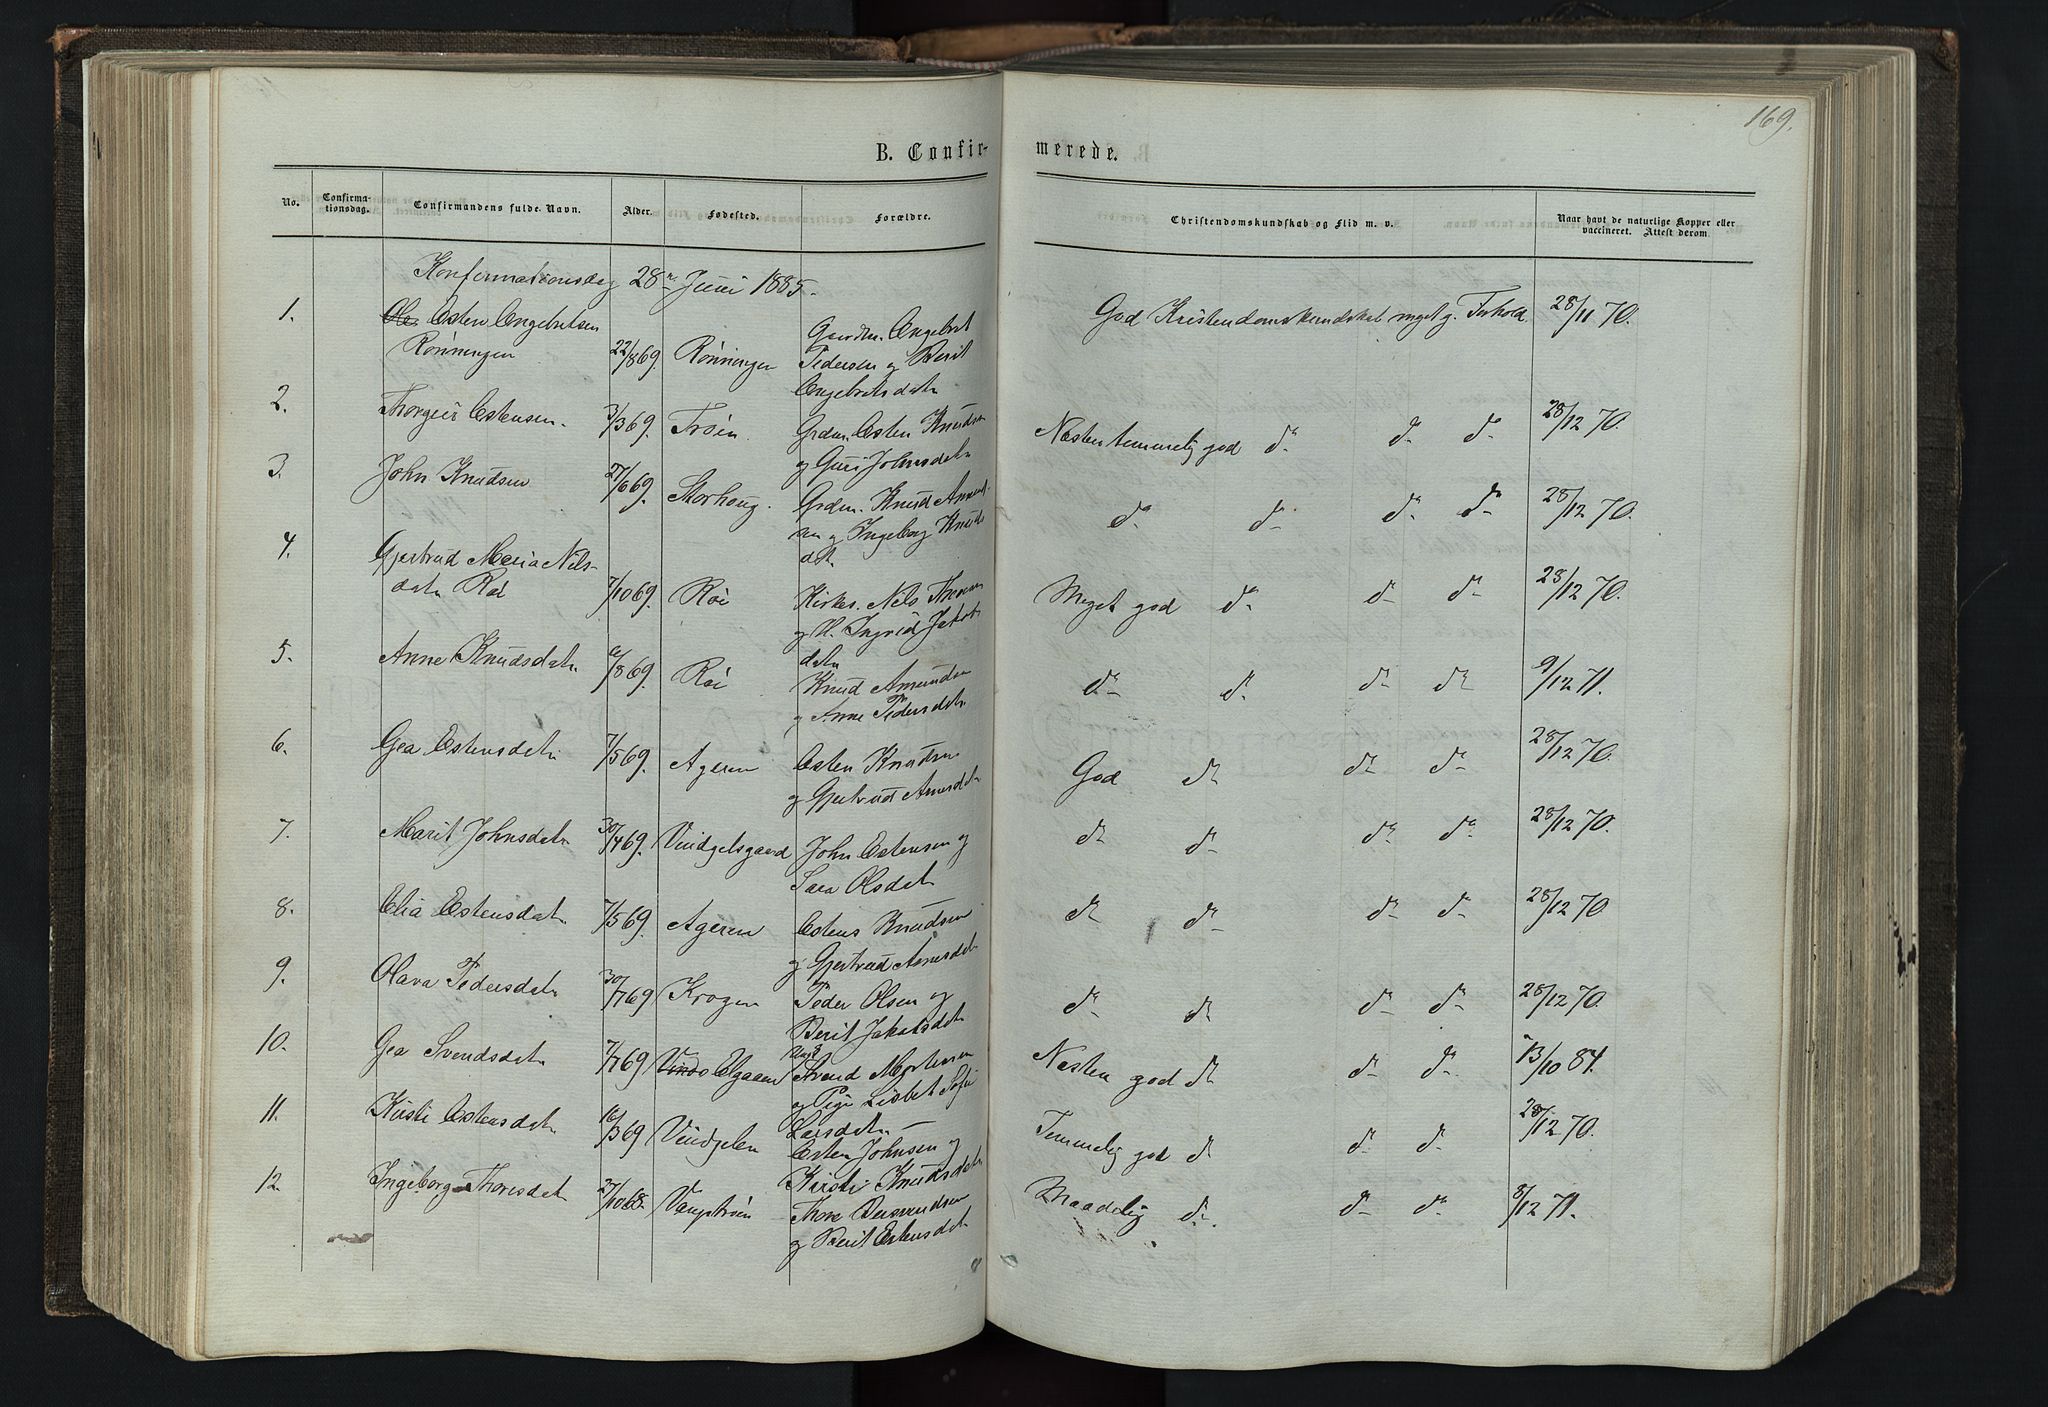 169.
B. Confirmerede.
No.
Confirmationsdag.
Confirmandens fulde Navn.
Alder.
Fødested.
Forældre.
Christendomskundskab og Flid m. v.
Naar havt de naturlige Kopper eller vaccineret. Attest derom.
Konfirmationsdag 28n Juni 1885.
1. Ole Esten Engebretsen
Rønningen 22/8 69. Rønningen
Gaardm. Engebret
Pedersen og Berit
Engebretsdatr
God Kristendomskundskab meget g. Forhold 28/11 70.
2. Thorgeir Estensen. 3/3 69. Trøen.
Grdm. Esten Knudsen
og Guri Johnsdatr
Næsten temmelig god do do do 28/12 70.
3. John Knudsen 27/6 69. Storhoug.
Grdm. Knud Amund-
sen og Ingeborg Knuds
datr
do do do do 28/12 70.
4. Gjertrud Maria Nils-
datr Røe 7/10 69. Røe
Kirkes. Nils Thoresen
og H. Ingrid Jakobs
datr
Meget god do do do 28/12 70.
5. Anne Knudsdatr 6/8 69. Røe
Knud Amundsen
og Anne Pedersdatr
do do do do 9/12 71.
6. Gea Estensdatr 7/5 69. Ageren
Esten Knudsen
og Gjertrud Arnesdatr
God do do do 28/12 70.
7. Marit Johnsdatr 30/4 69. Vindgelsgaard
John Estensen og
Sara Olsdatr
do do do do 28/12 70.
8. Elia Estensdatr 7/5 69. Ageren
Estens Knudsen
og Gjertrud Arnesdatr
do do do do 28/12 70.
9. Olava Pedersdatr 30/7 69 Krogen
Peder Olsen og
Berit Jakobsdatr
do do do do 28/12 70.
10. Gea Svendsdatr 7/7 69 Vinds Elgaaen
Ungk
Svend Mortensen
og Pige Lisbet Sofie
Larsdatr
Næsten god do do do 13/10 84.
11. Kirsti Estensdatr 16/3 69 Vindgelen
Esten Johnsen og
Kirsti Knudsdatr
Temmelig god do do do 28/12 70.
12. Ingeborg Thoresdatr 27/10 68. Vangstrøen
Thore
og Berit Estensdatr
Maadelig do do do 8/12 71.